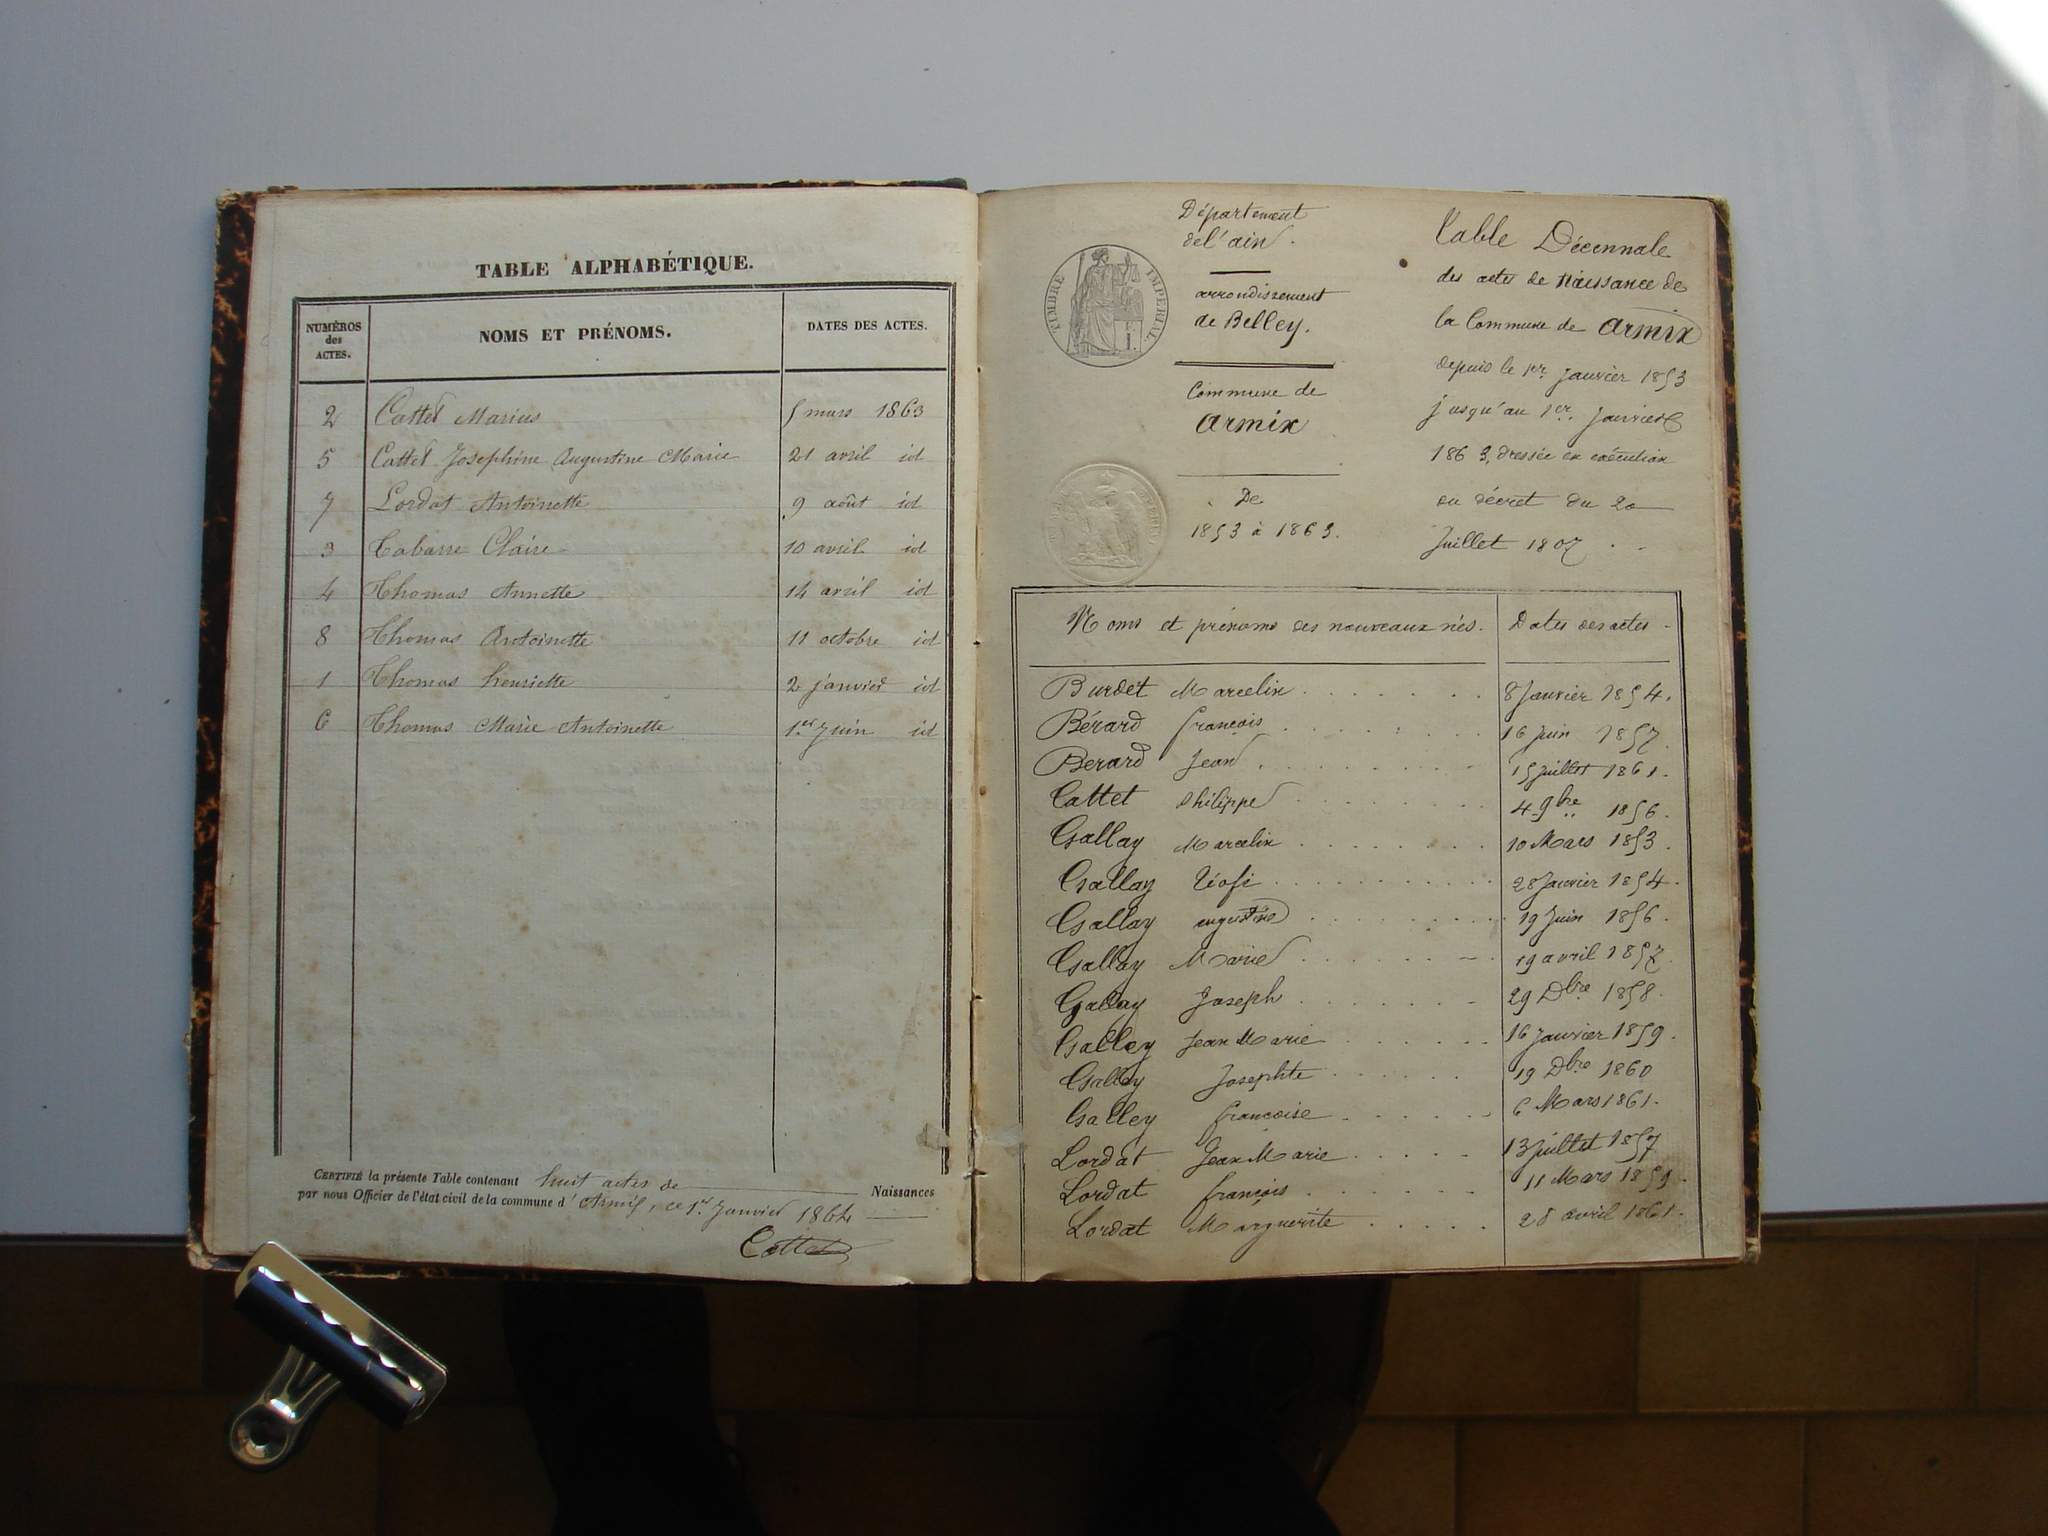 TABLE ALPHABÉTIQUE.
NUMÉROS des ACTES. NOMS ET PRÉNOMS. DATES DES ACTES.
2 Cattet Marius 5 mars 1863
5 Cattet Josephine Augustine Marie 21 avril id
7 Lordat Antoinette 9 août id
3 Tabarre Claire 10 avril id
4 Thomas Annette 14 avril id
8 Thomas Antoinette 11 octobre id
1 Thomas henriette 2 janvier id
6 Thomas Marie Antoinette 1er Juin id
CERTIFIÉ la présente Table contenant huit actes de Naissances
par nous Officier de l'état civil de la commune d'Armix, ce 1er Janvier 1864
Cattet
Département
de l'ain.
TIMBRE IMPERIAL
arrondissement
de Belley.
Commune de
armix
De
1853 à 1863.
Table Décennale
des actes de naissance de
la Commune de armix
depuis le 1er Janvier 1853
jusqu'au 1er Janvier
1863, dressée en exécution
du décret du 20
Juillet 1807
Noms et prénoms des nouveaux nés. Dates des actes
Burdet Marcelin 8 Janvier 1854.
Bérard françois 16 juin 1857.
Berard Jean 15 juillet 1861.
Cattet philippe 4 9bre 1856.
Gallay Marcelin 10 Mars 1853.
Gallay Téofi 28 Janvier 1854.
Gallay augustine 19 Juin 1856.
Gallay Marie 19 avril 1857.
Gallay Joseph 29 Dbre 1858.
Galley Jean Marie 16 janvier 1859.
Galley Josephte 19 Dbre 1860
Galley françoise 6 Mars 1861.
Lordat Jean Marie 13 juillet 1857
Lordat françois 11 Mars 1859.
Lordat Marguerite 28 avril 1861.